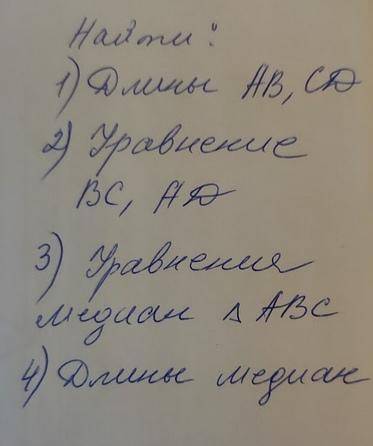 Найти:
1) Длины AB, CD
2) Уравнение
BC, AD
3) Уравнения
медиан △ ABC
4) Длины медиан